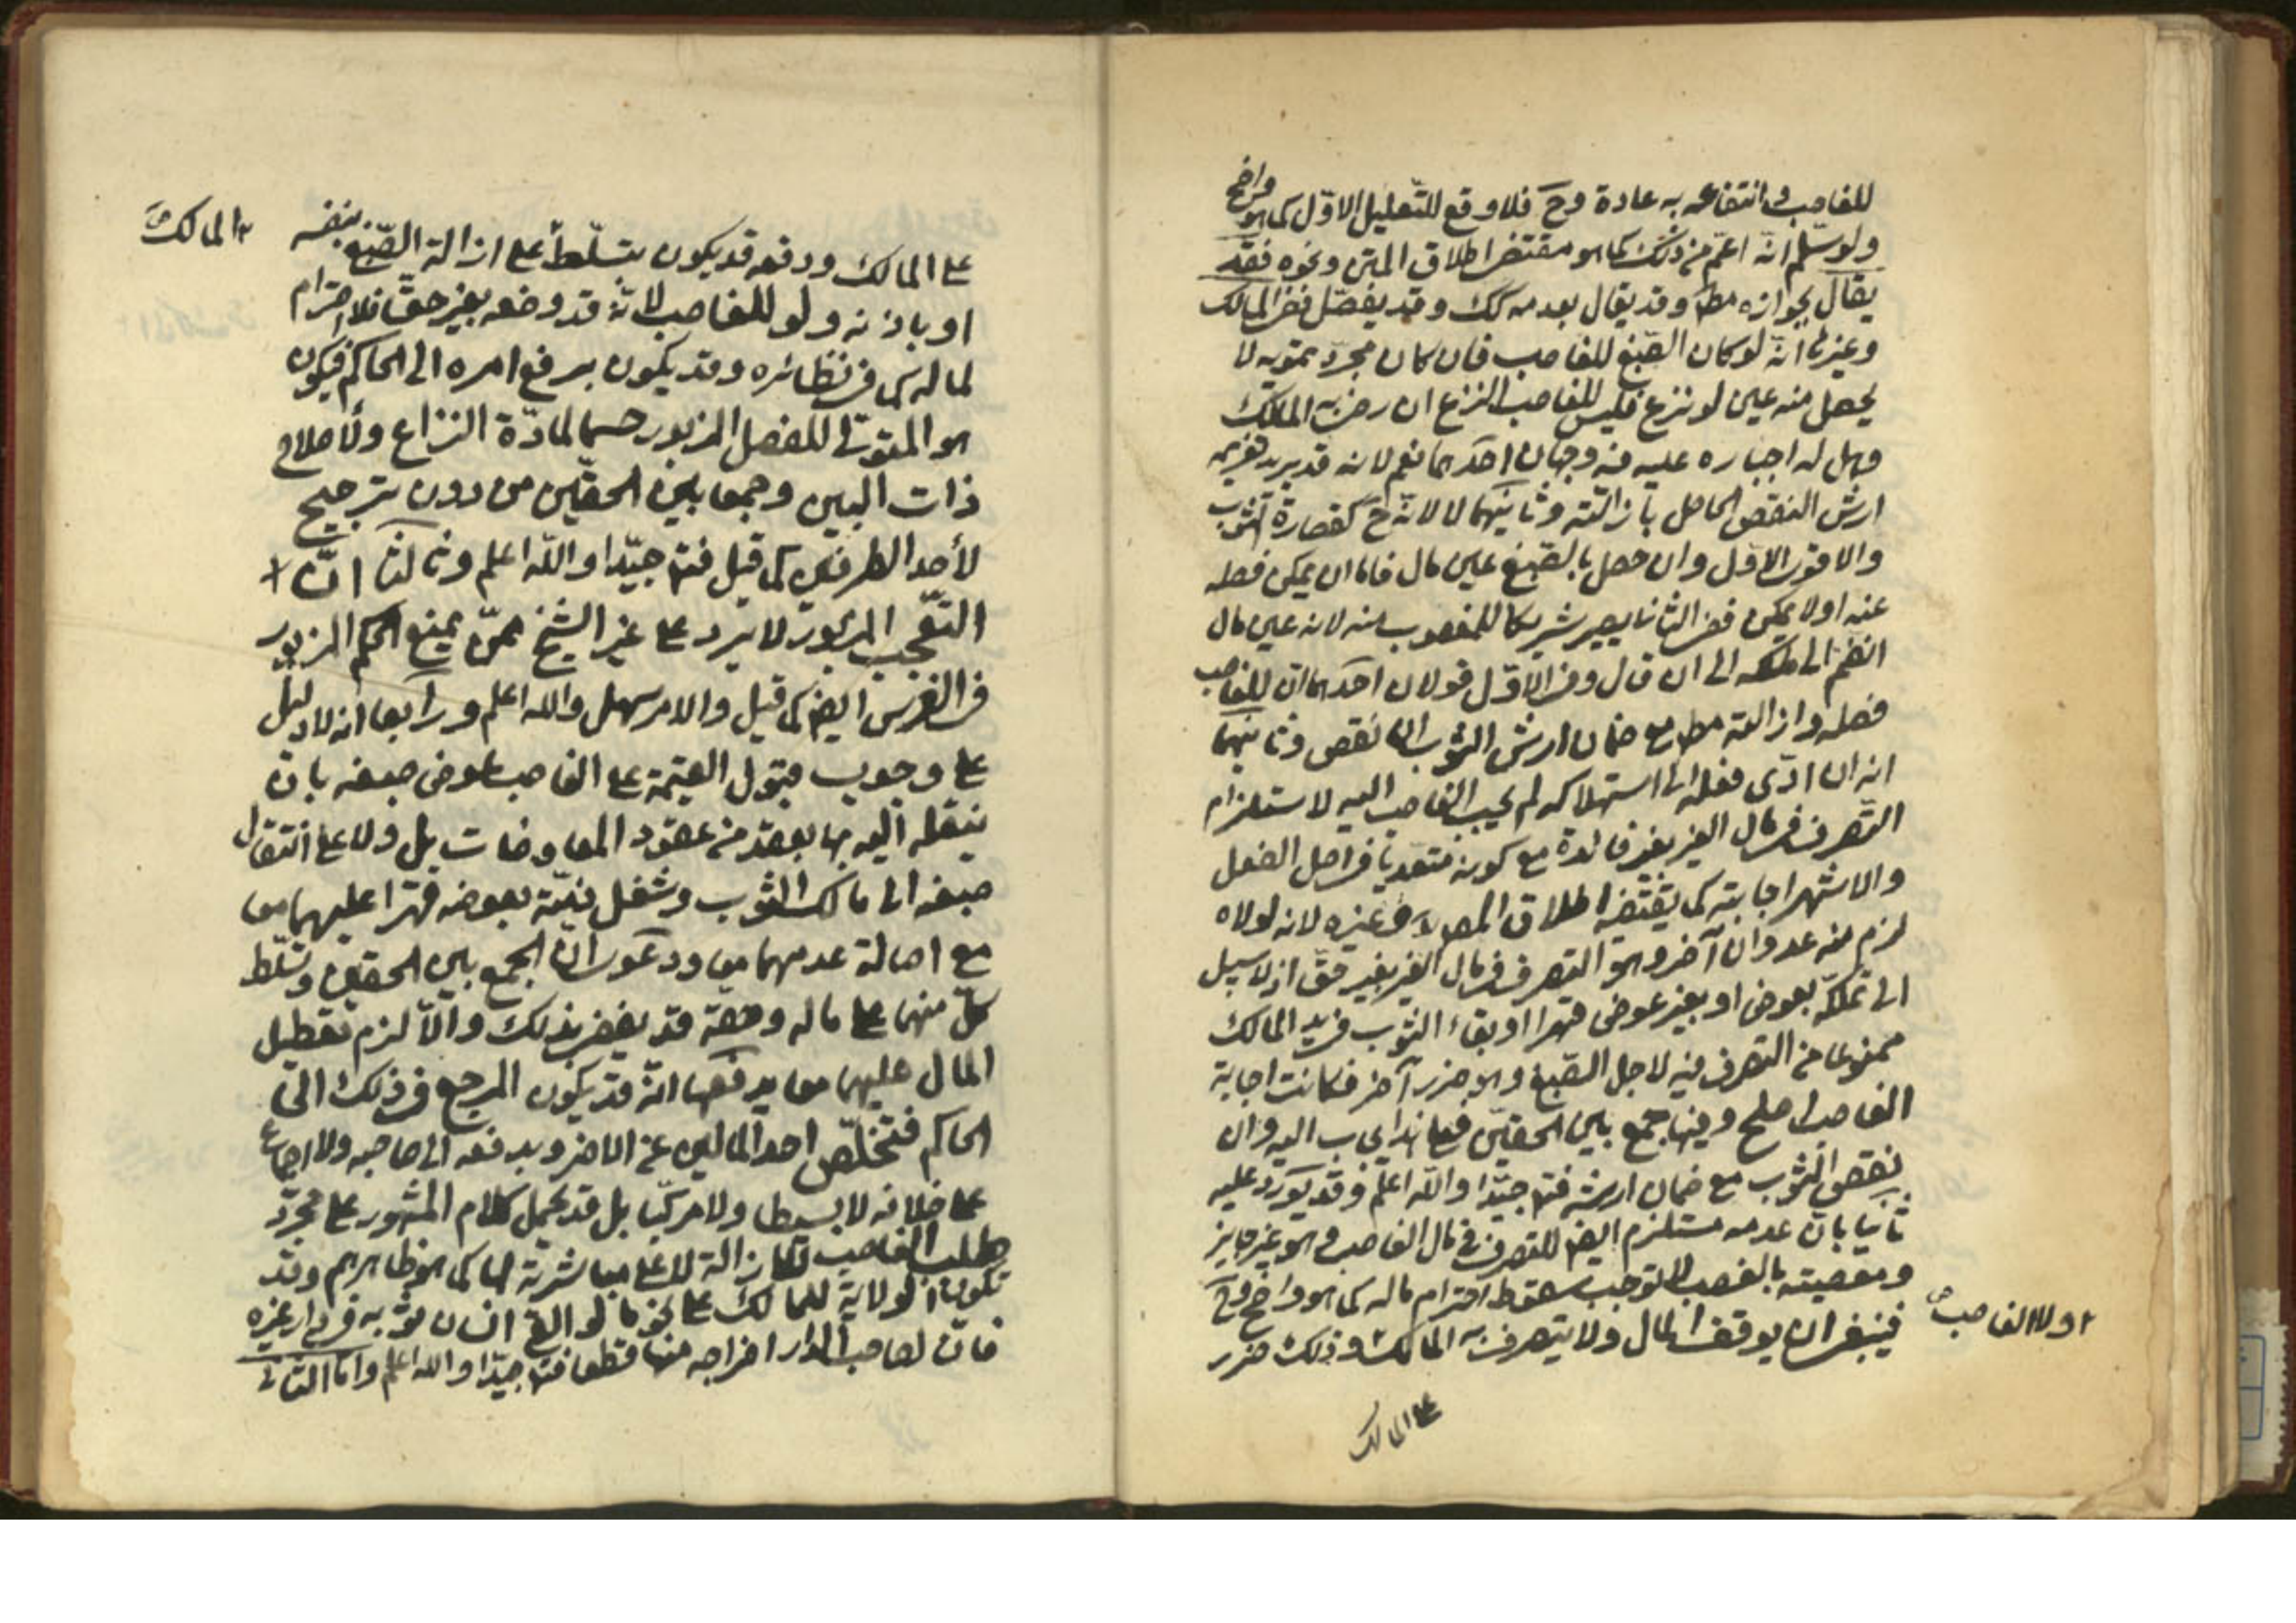 للغاصب و انتفاعه به عادة وح فلا وقع للتعليل الاوّل كما هو واضح
ولو سلّم انّه اعمّ من ذلك كما هو مقتضى اطلاق المتن ونحوه فقد
يقال بجوازه مط وقد يقال بعدمه كك وقد يفصّل ففى المسالك
وغيرها انّه لو كان الصّبغ للغاصب فان كان مجرّد تمويه لا
يحصل منه عين لو نزع فليس للغاصب النزع ان رضى به المالك
وهل له اجباره عليه فيه وجهان احدهما نعم لانه قد يريد تغريمه
ارش النقص الحاصل بازالته وثانيهما لا لانّه ح كقصارة الثوب
والاقوى الاوّل وان حصل بالصّبغ عين مال فاما ان يمكن فصله
عنه او لا يمكن ففى الثانى يصير شريكا للمغصوب منه لانه عين مال
انضمّ الى ملكه الى ان قال وفى الاوّل قولان احدهما انّ للغاصب
فصله وازالته مط مع ضمان ارش الثوب ان نقص وثانيهما
انه ان ادّى فصله الى استهلاكه لم يجب الغاصب اليه لاستلزام
التصرف فى مال الغير بغير فائدة مع كونه متعديا فى اصل الفعل
والاشهر اجابته كما يقتضيه اطلاق المصنف وغيره لانه لولاه
لزم منه عدوان آخر وهو التصرف فى مال الغير بغير حقّ اذ لا سبيل
الى تملّكه بعوض او بغير عوض قهرا او بقاء الثوب فى يد المالك
ممنوعا من التصرف فيه لاجل الصّبغ وهو ضرر آخر فكانت اجابة
الغاصب اصلح وفيها جمع بين الحقيّن فعلى هذا يجاب اليه وان
نقص الثوب مع ضمان ارشه فتـ جيّدا واللّه اعلم وقد يورد عليه
ثانيا بانّ عدمه مستلزم ايضا للتصرف فى مال الغاصب وهو غير جايز
ومعصيته بالغصب لا توجب سقوط احترام ماله كما هو واضح وح
فينبغى ان يوقف المال ولا يتصرف به المالك وذلك ضرر
او لا الغاصب
على المالك
المالك
على المالك ودفعه قد يكون بتسلّطه على ازالة الصّبغ بنفسه
او باذنه ولو للغاصب لانّه قد وضعه بغير حقّ فلا احترام
لماله كما فى نظائره وقد يكون برفع امره الى الحاكم فيكون
هو المتولى للفصل المزبور حسما لمادّة النزاع ولأصلاح
ذات البين وجمعا بين الحقيّن من دون ترجيح
لأحد الطرفين كما قيل فتـ جيّدا واللّه اعلم وثالثا انّ
التعّجب المذكور لا يرد على غير الشيخ ممّن يمنع الحكم المزبور
فى الغرس ايضا كما قيل والامر سهل واللّه اعلم ورابعا انه لا دليل
على وجوب قبول القيمة على الغاصب عوض صبغه بان
ينقله اليه بها بعقد من عقود المعاوضات بل ولا على انتقال
صبغه الى مالك الثوب وشغل ذمّته بعوضه قهرا عليهما معا
مع اصالة عدمهما معا ودعوى انّ الجمع بين الحقين وتسلّط
كلّ منهما على ماله وحقه قد يقضى بذلك والّا لزم تعطيل
المال عليهما معا يدفعها انّه قد يكون المرجع فى ذلك الى
الحاكم فتخلّص احد المالين عن الاخر ويدفعه الى صاحبه ولا اجماع
على خلافه لا بسيطا ولا مركّبا بل قد يحمل كلام المشهور على مجرّد
طلب الغاصب للازالة لا على مباشرته لها كما هو ظاهرهم وقد
تكون الولاية للمالك على نحو ما لو القى انسان ثوبه فى دار غيره
فانّ لصاحب الدار اخراجه منها قطعا فتـ جيّدا واللّه اعلم وامّا الثانى